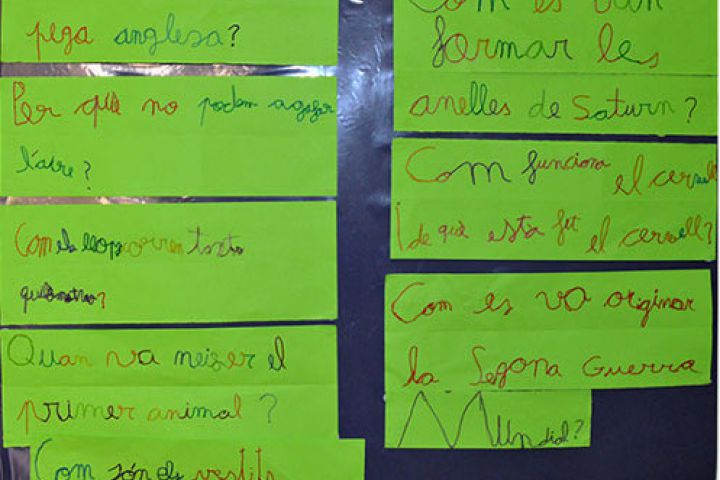 pega anglesa?
Per què no podem agafar
l'aire?
Com els llops corren tants
quilòmetros?
Quan va neixer el
primer animal?
Com són els vestits
Com es van
formar les
anelles de Saturn?
Com funciona el cervell
I de què està fet el cervell?
Com es va originar
la Segona Guerra
Mundial?